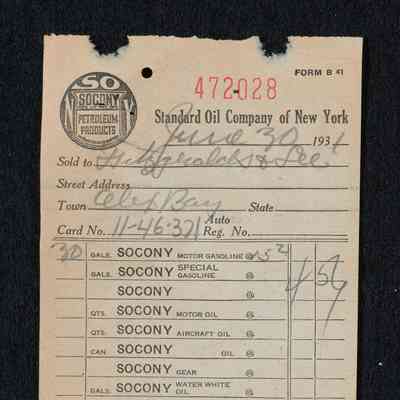 FORM B 41
472028
SO
SOCONY
PETROLEUM
PRODUCTS
Standard Oil Company of New York
June 30 1931
Sold to Fitzgerald & Lee
Street Address
Town Alex Bay State
Card No. 11-46-371 Auto Reg. No.
30 GALS. SOCONY MOTOR GASOLINE @ 15 2 4 56
GALS. SOCONY SPECIAL GASOLINE @
SOCONY @
QTS. SOCONY MOTOR OIL @
QTS. SOCONY AIRCRAFT OIL @
CAN SOCONY OIL @
SOCONY GEAR @
GALS. SOCONY WATER WHITE OIL @